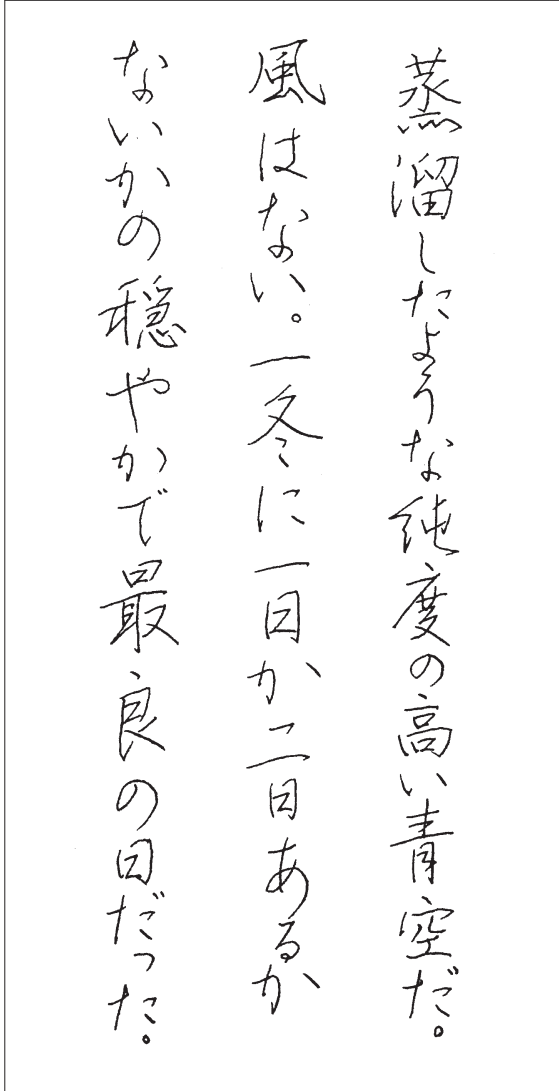 蒸溜したような純度の高い青空だ。
風はない。一冬に一日か二日あるか
ないかの穏やかで最良の日だった。